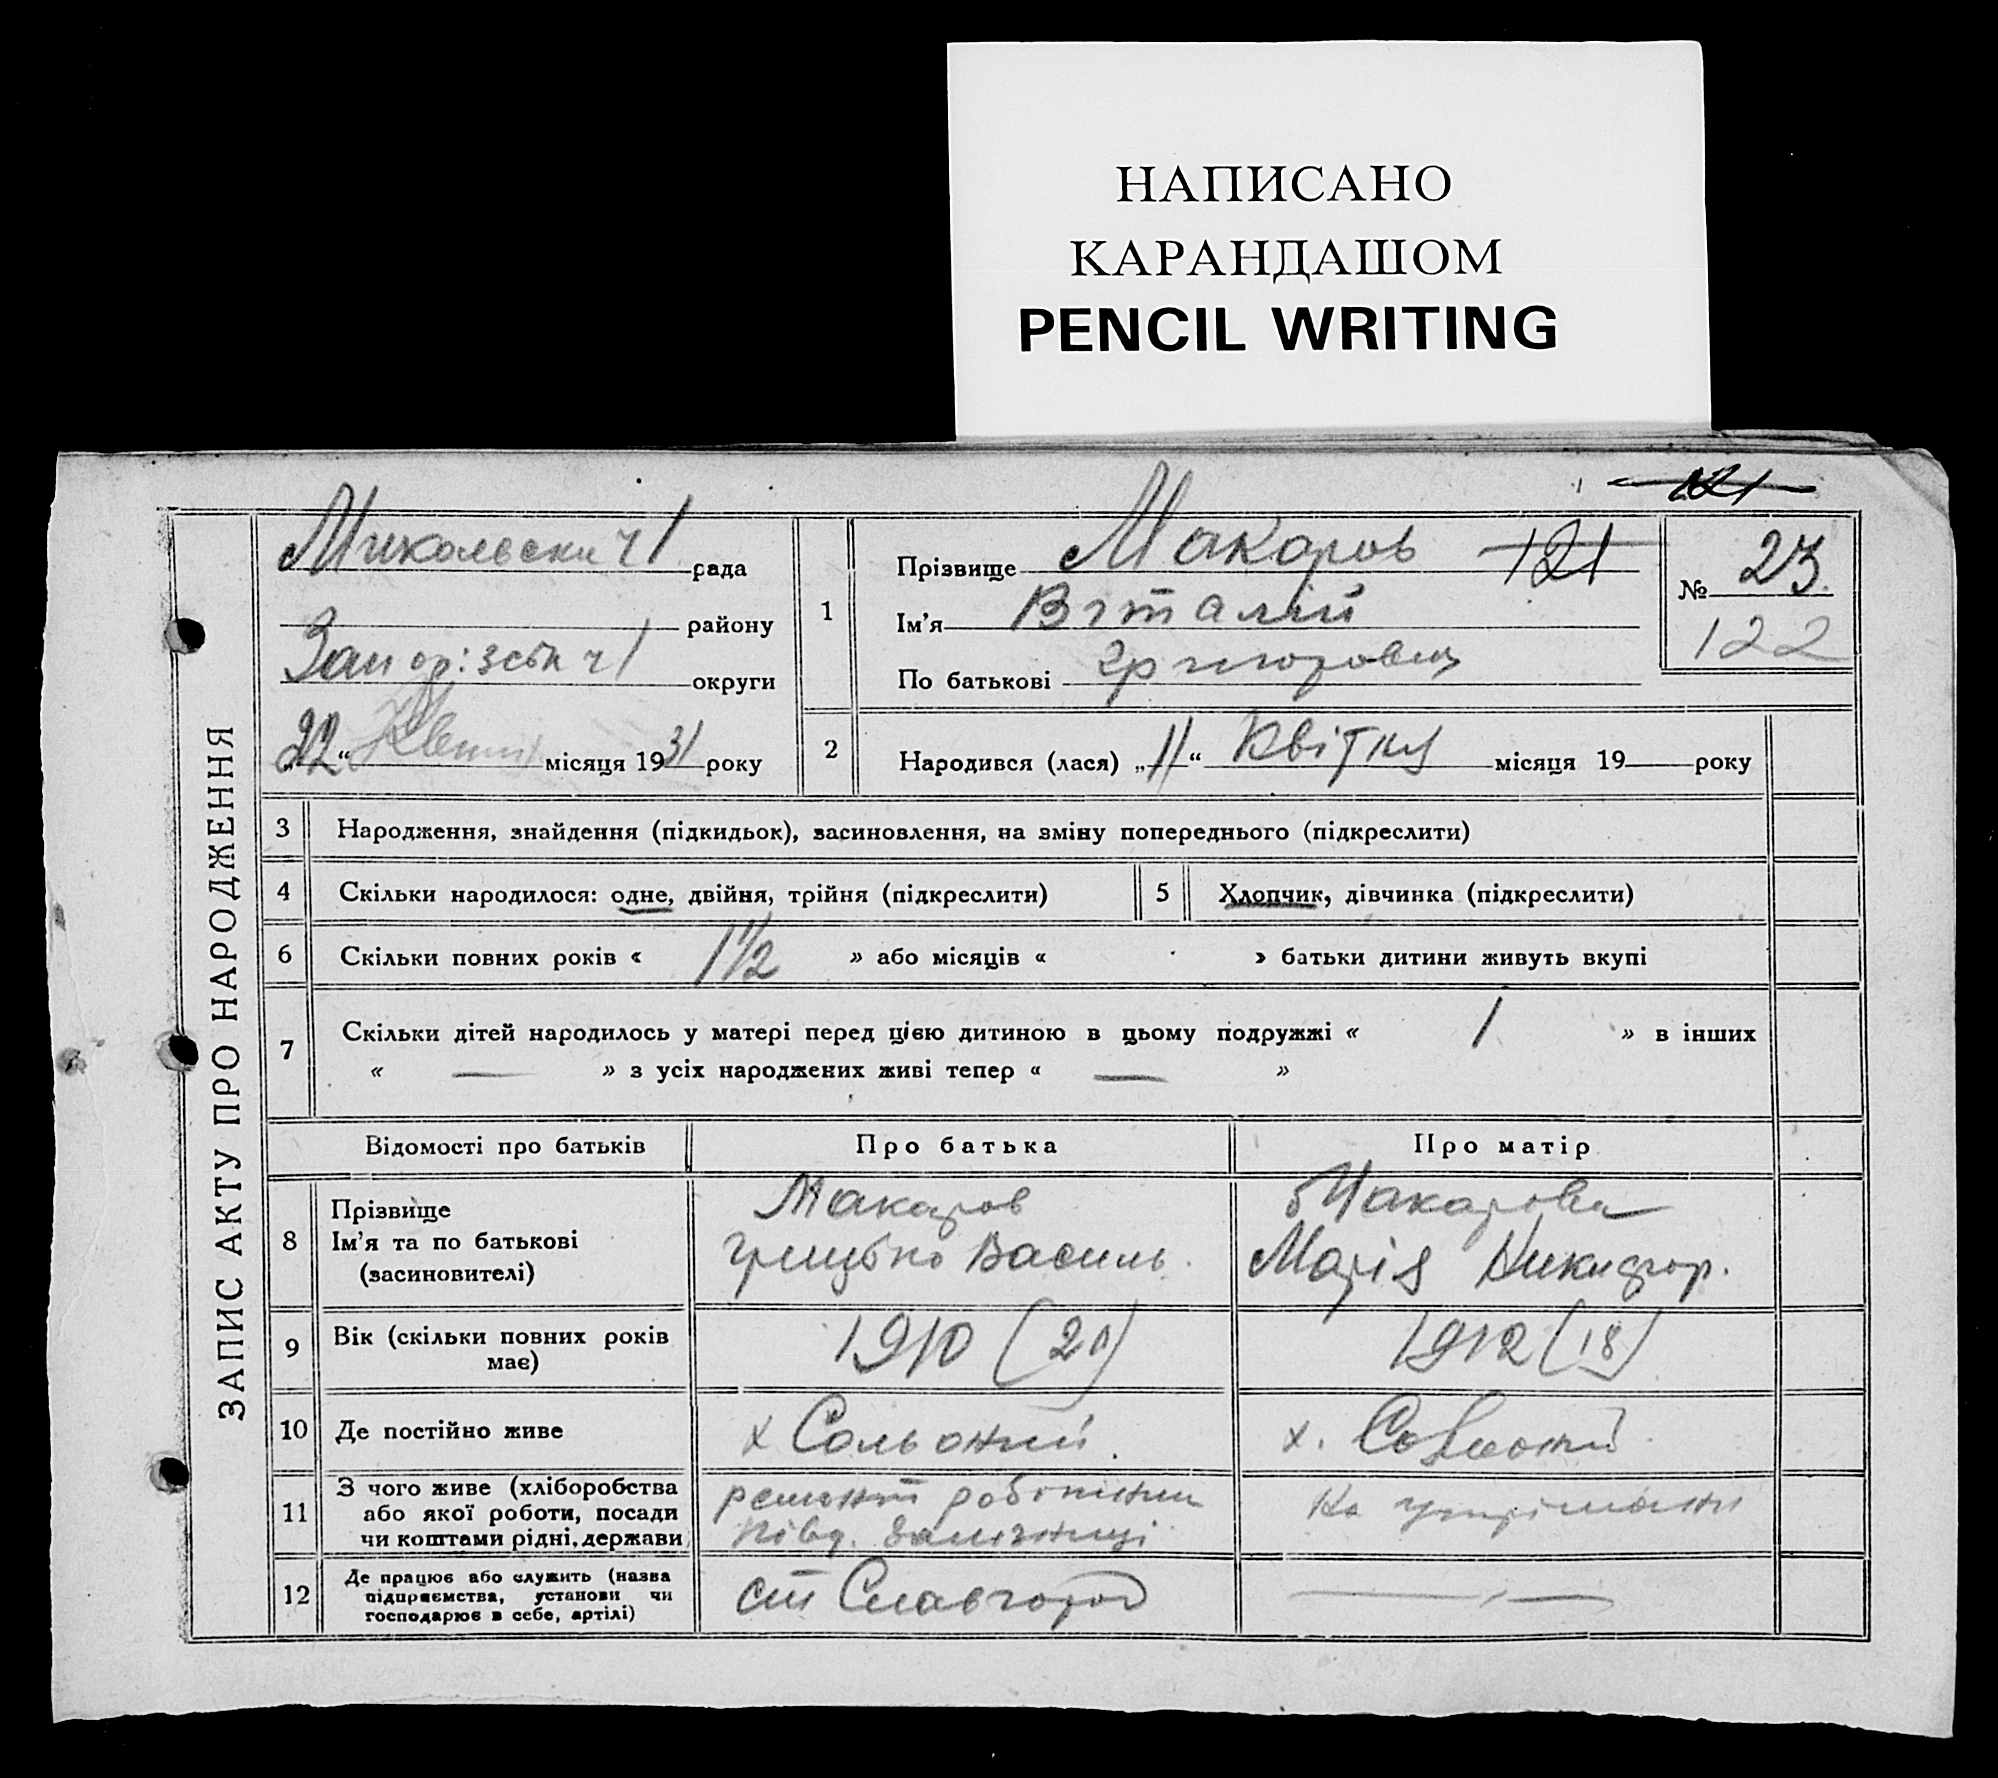 НАПИСАНО
КАРАНДАШОМ
PENCIL WRITING
121
ЗАПИС АКТУ ПРО НАРОДЖЕННЯ
рада
району
округи
„22“ місяця 1931 року
1
Прізвище Макаров 121
Ім'я Віталій
По батькові Григорович
№ 23.
122
2
Народився (лася) „11“ Квітня місяця 19 року
3 Народження, знайдення (підкидьок), засиновлення, на зміну попереднього (підкреслити)
4 Скільки народилося: одне, двійня, трійня (підкреслити)
5 Хлопчик, дівчинка (підкреслити)
6 Скільки повних років « 1 1/2 » або місяців « » батьки дитини живуть вкупі
7 Скільки дітей народилось у матері перед цією дитиною в цьому подружжі « 1 » в інших
« — » з усіх народжених живі тепер « — »
Відомості про батьків Про батька Про матір
8 Прізвище
Ім'я та по батькові
(засиновителі)
Макаров
Грицько Василь.
Макарова
Марія Никифор.
9 Вік (скільки повних років
має)
1910 (20)
1912 (18)
10 Де постійно живе
х Сольоний.
х. Сольоний
11 З чого живе (хліборобства
або якої роботи, посади
чи коштами рідні, держави
ремонт робітник
Півд. Залізниці
На утрімані
12 Де працює або служить (назва
підприємства, установи чи
господарює в себе, артілі)
ст Славгород